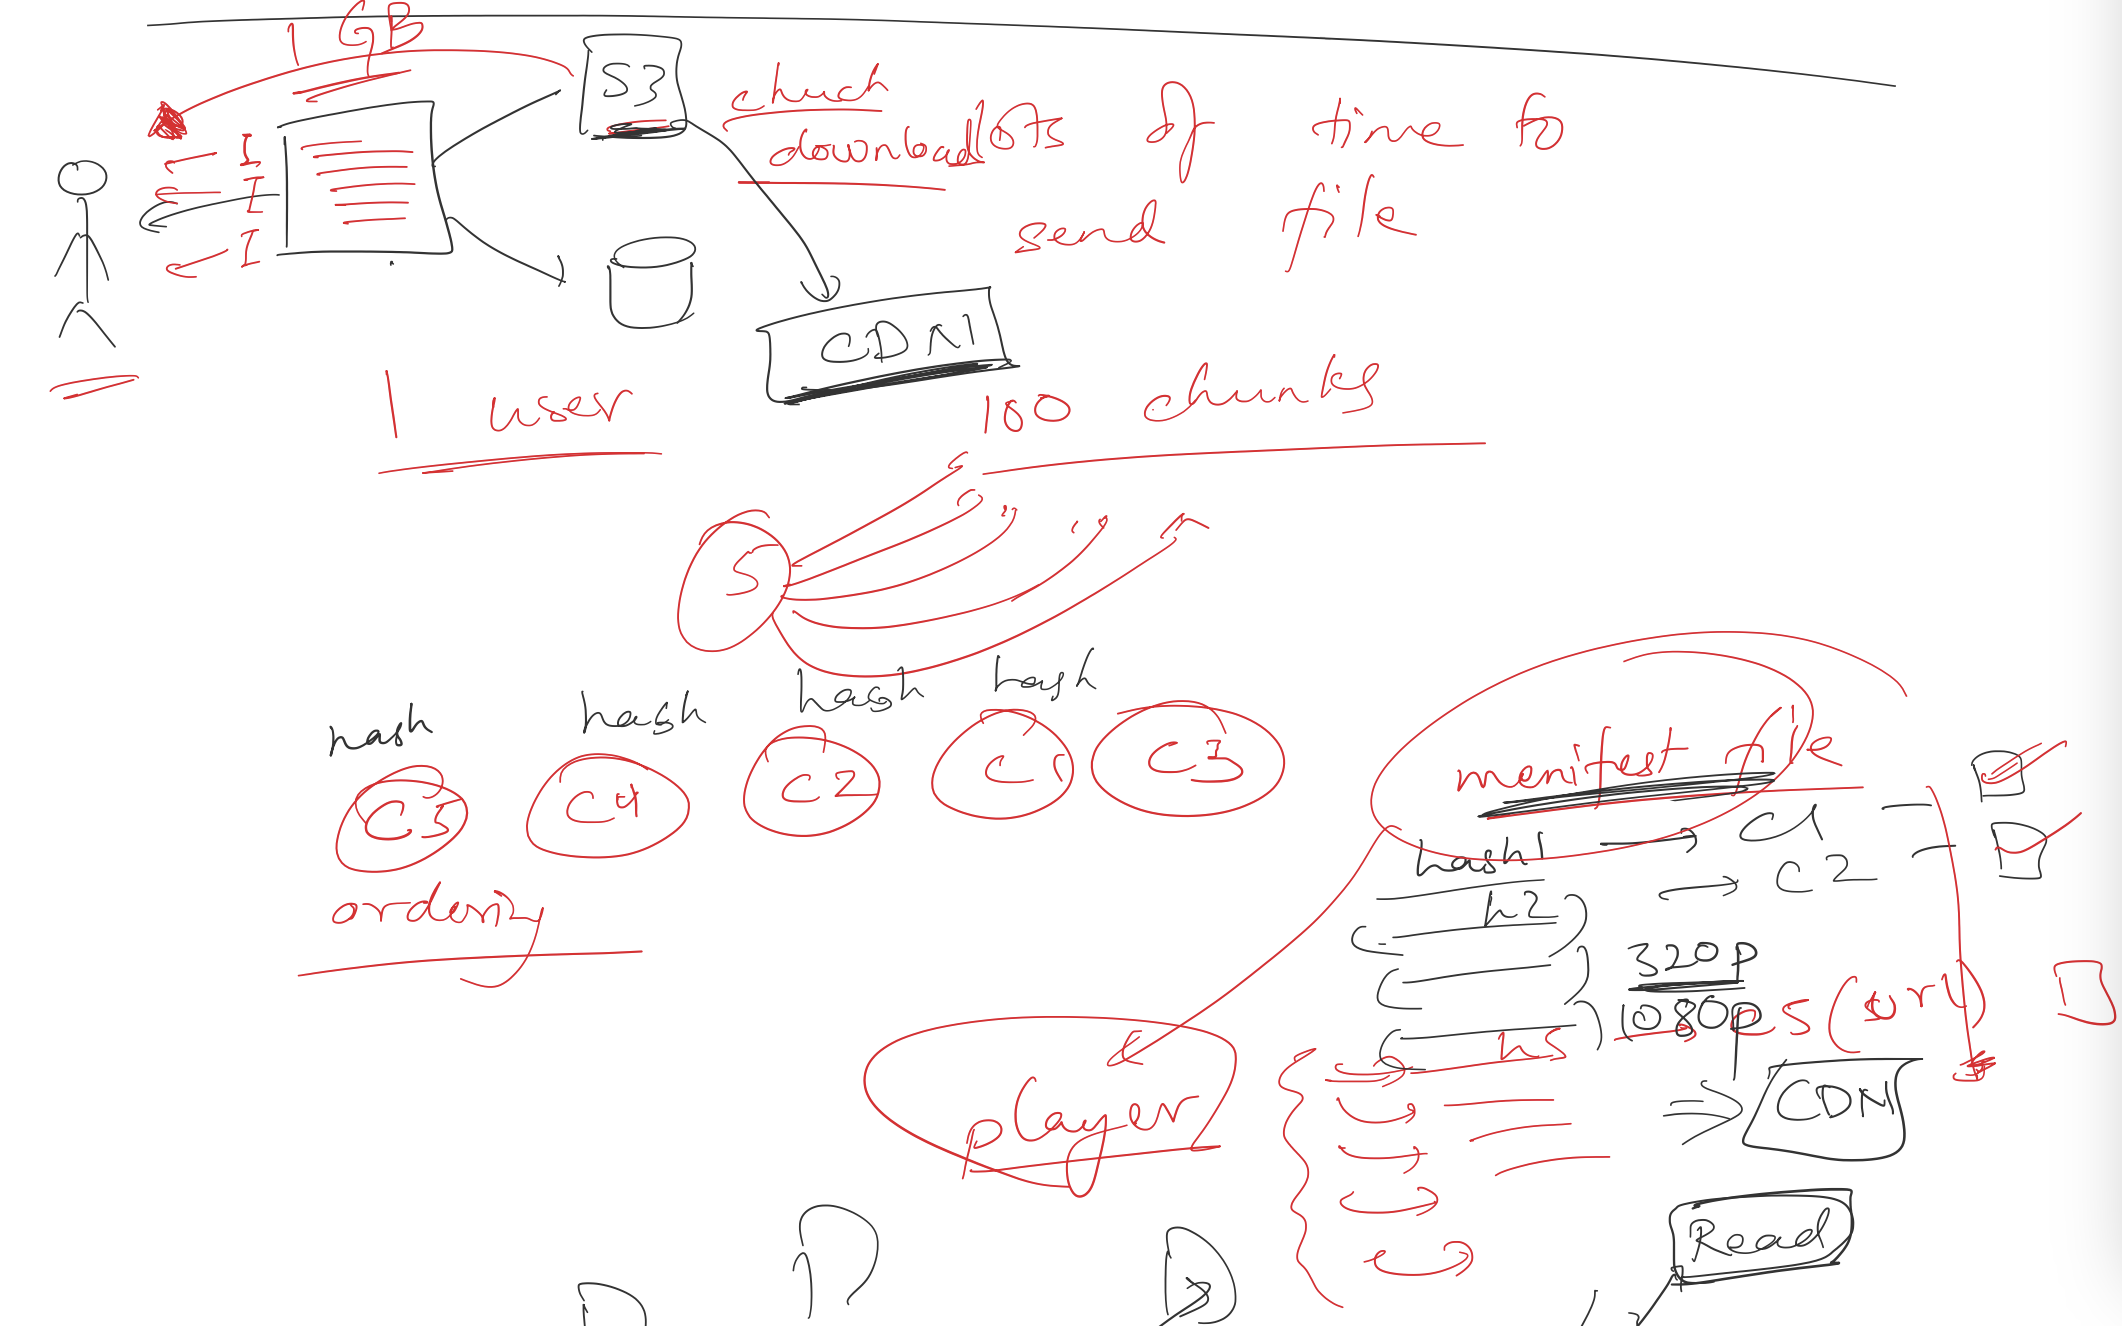 1 GB
S3
chuck
download
lots of time to
send file
CDN
1 user
100 chunks
5
hash
hash
hash
hash
C5
C4
C2
C1
C3
manifest file
hash1 → C1
h2 → C2
ordering
320p
1080p
h5
C5 (url)
player
CDN
Read